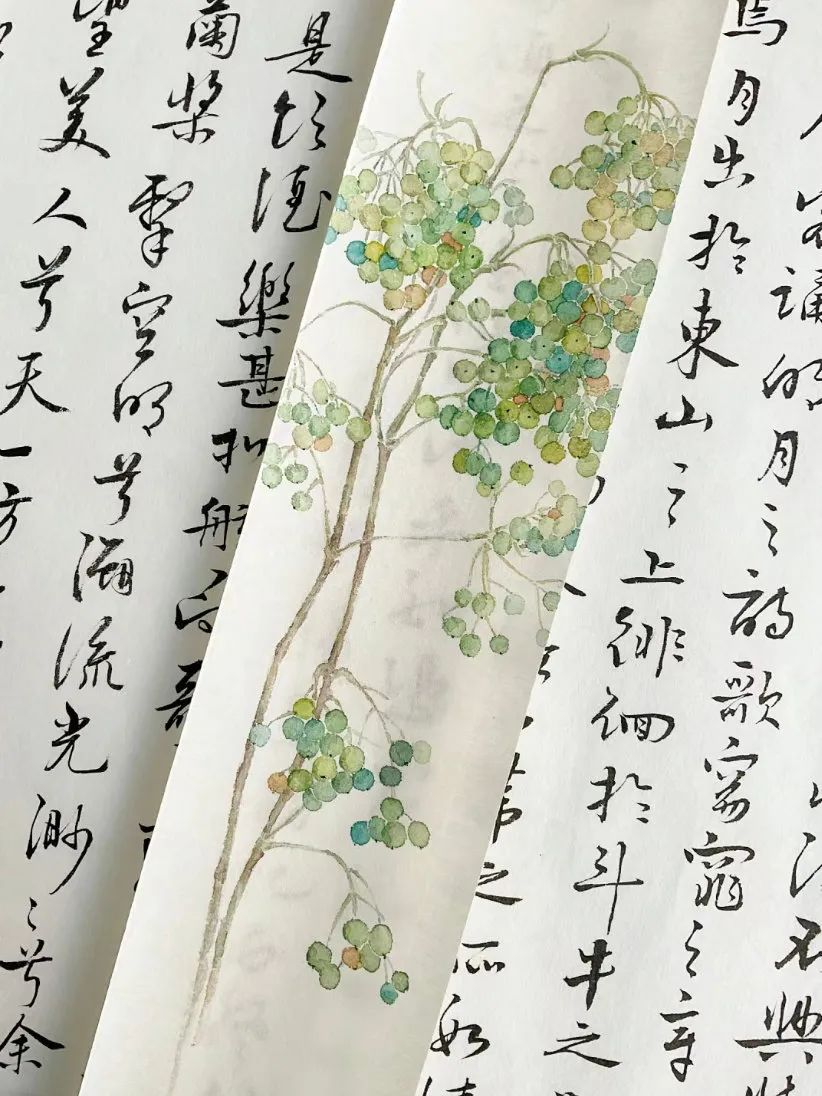 不興
客誦明月之詩歌窈窕之章
焉月出於東山之上徘徊於斗牛之
葦之所如
是飲酒樂甚扣舷而歌
蘭槳擊空明兮溯流光渺〻兮余
望美人兮天一方